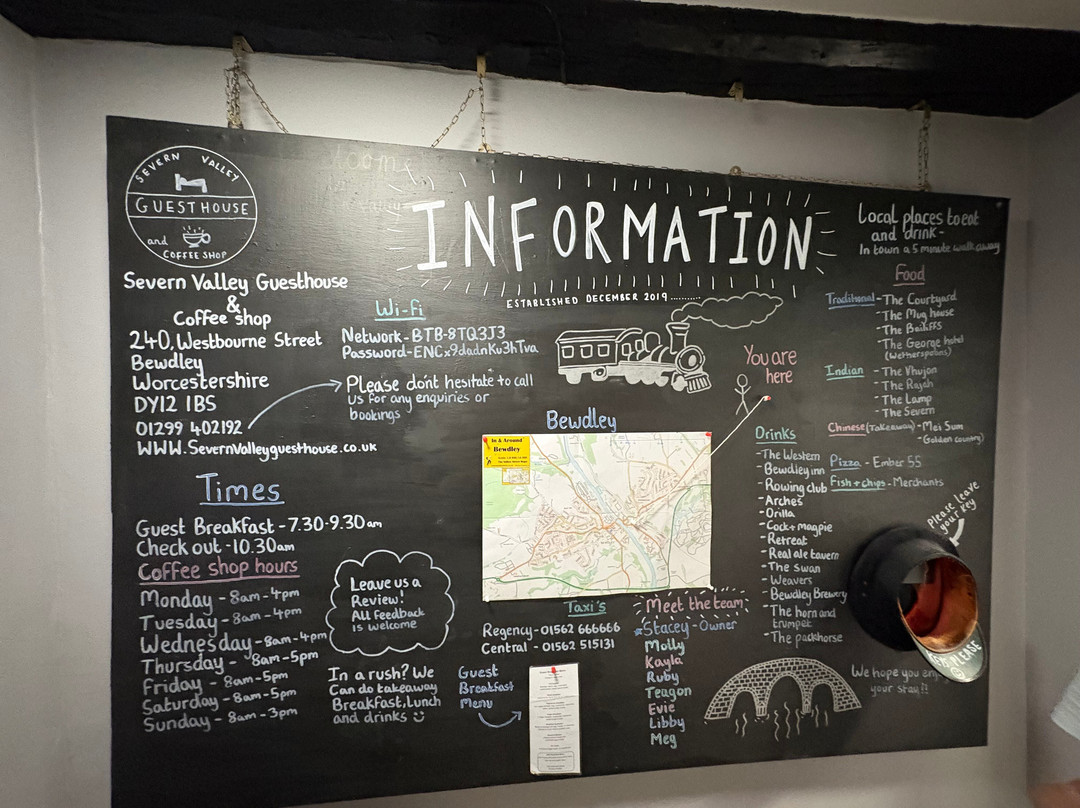 SEVERN VALLEY
GUESTHOUSE
and
COFFEE SHOP
INFORMATION
ESTABLISHED DECEMBER 2019..........
Severn Valley Guesthouse
&
Coffee shop
240, Westbourne Street
Bewdley
Worcestershire
DY12 1BS
01299 402192
WWW.SevernValleyguesthouse.co.uk
Wi-fi
Network-BTB-8TQ3J3
Please don't hesitate to call
us for any enquiries or
bookings
Times
Guest Breakfast - 7.30-9.30am
Check out -10.30am
Coffee shop hours
Monday - 8am-4pm
Tuesday - 8am-4pm
Wednesday - 8am-4pm
Thursday - 8am-5pm
Friday - 8am-5pm
Saturday - 8am-5pm
Sunday - 8am-3pm
Leave us a
Review!
All feedback
is welcome
In a rush? We
Can do takeaway
Breakfast, Lunch
and drinks
Guest
Breakfast
Menu
Bewdley
In & Around
Bewdley
You are
here
Taxi's
Regency-01562 666666
Central - 01562 515131
Meet the team
Stacey - Owner
Molly
Kayla
Ruby
Teagon
Evie
Libby
Meg
Local places to eat
and drink-
In town a 5 minute walk away
Food
Traditional - The Courtyard
- The Mug house
- The Bailiffs
- The George hotel
(Wetherspoons)
Indian - The Vhujon
- The Rajah
- The Lamp
- The Severn
Chinese (Takeaway) - Mei Sum
- Golden country)
Pizza - Ember 55
Fish + chips - Merchants
Drinks
- The Western
- Bewdley inn
- Rowing club
- Arches
- Orilla
- Cock + magpie
- Retreat
- Real ale tavern
- The swan
- Weavers
- Bewdley Brewery
- The horn and
trumpet
- The packhorse
Please leave
your key
KEYS PLEASE
We hope you
your stay!!